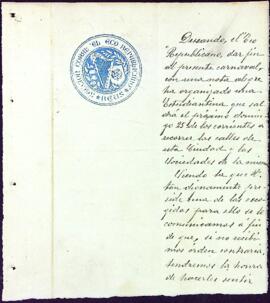 Deseando, el Eco
Republicano, dar fin
al presente carnaval,
con una nota alegre
ha organizado una
Estudiantina que sal
drá el próximo domin
go 25 de los corrientes á
recorrer las calles de
esta Ciudad y las
Sociedades de la misma
Siendo la que
tan dignamente pre
side una de las esco
gidas para ello se lo
comunicamos á fin
de que, si no recibi
mos orden contraria,
tendremos la honra
de hacerles sentir
EL ECO REPUBLICANO